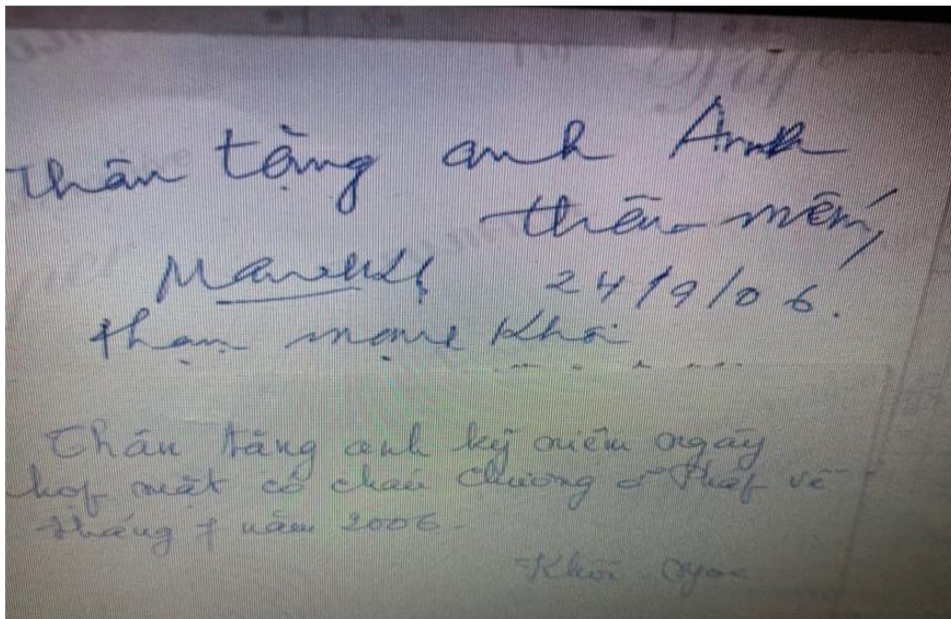 Thân tặng anh Anh
thân mến,
24/9/06.
Phạm mạnh Khôi
Thân tặng anh kỷ niệm ngày
họp mặt có cháu Chương ở Pháp về
tháng 7 năm 2006.
Khôi Ngọc